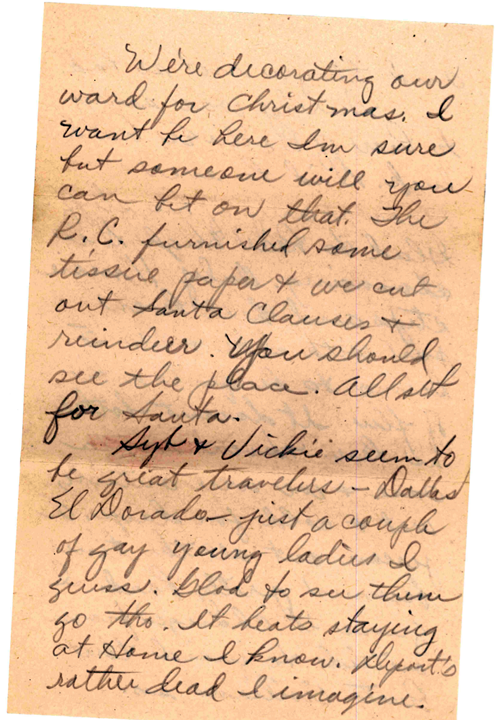 We're decorating our
ward for Christmas. I
want be here I'm sure
but someone will you
can bet on that. The
R.C. furnished some
tissue paper & we cut
out Santa Clauses &
reindeer. You should
see the place. All set
for Santa.
Syb & Vickie seem to
be great travelers – Dallas
El Dorado – just a couple
of gay young ladies I
guess. Glad to see them
go tho. It beats staying
at Home I know. Deport's
rather dead I imagine.